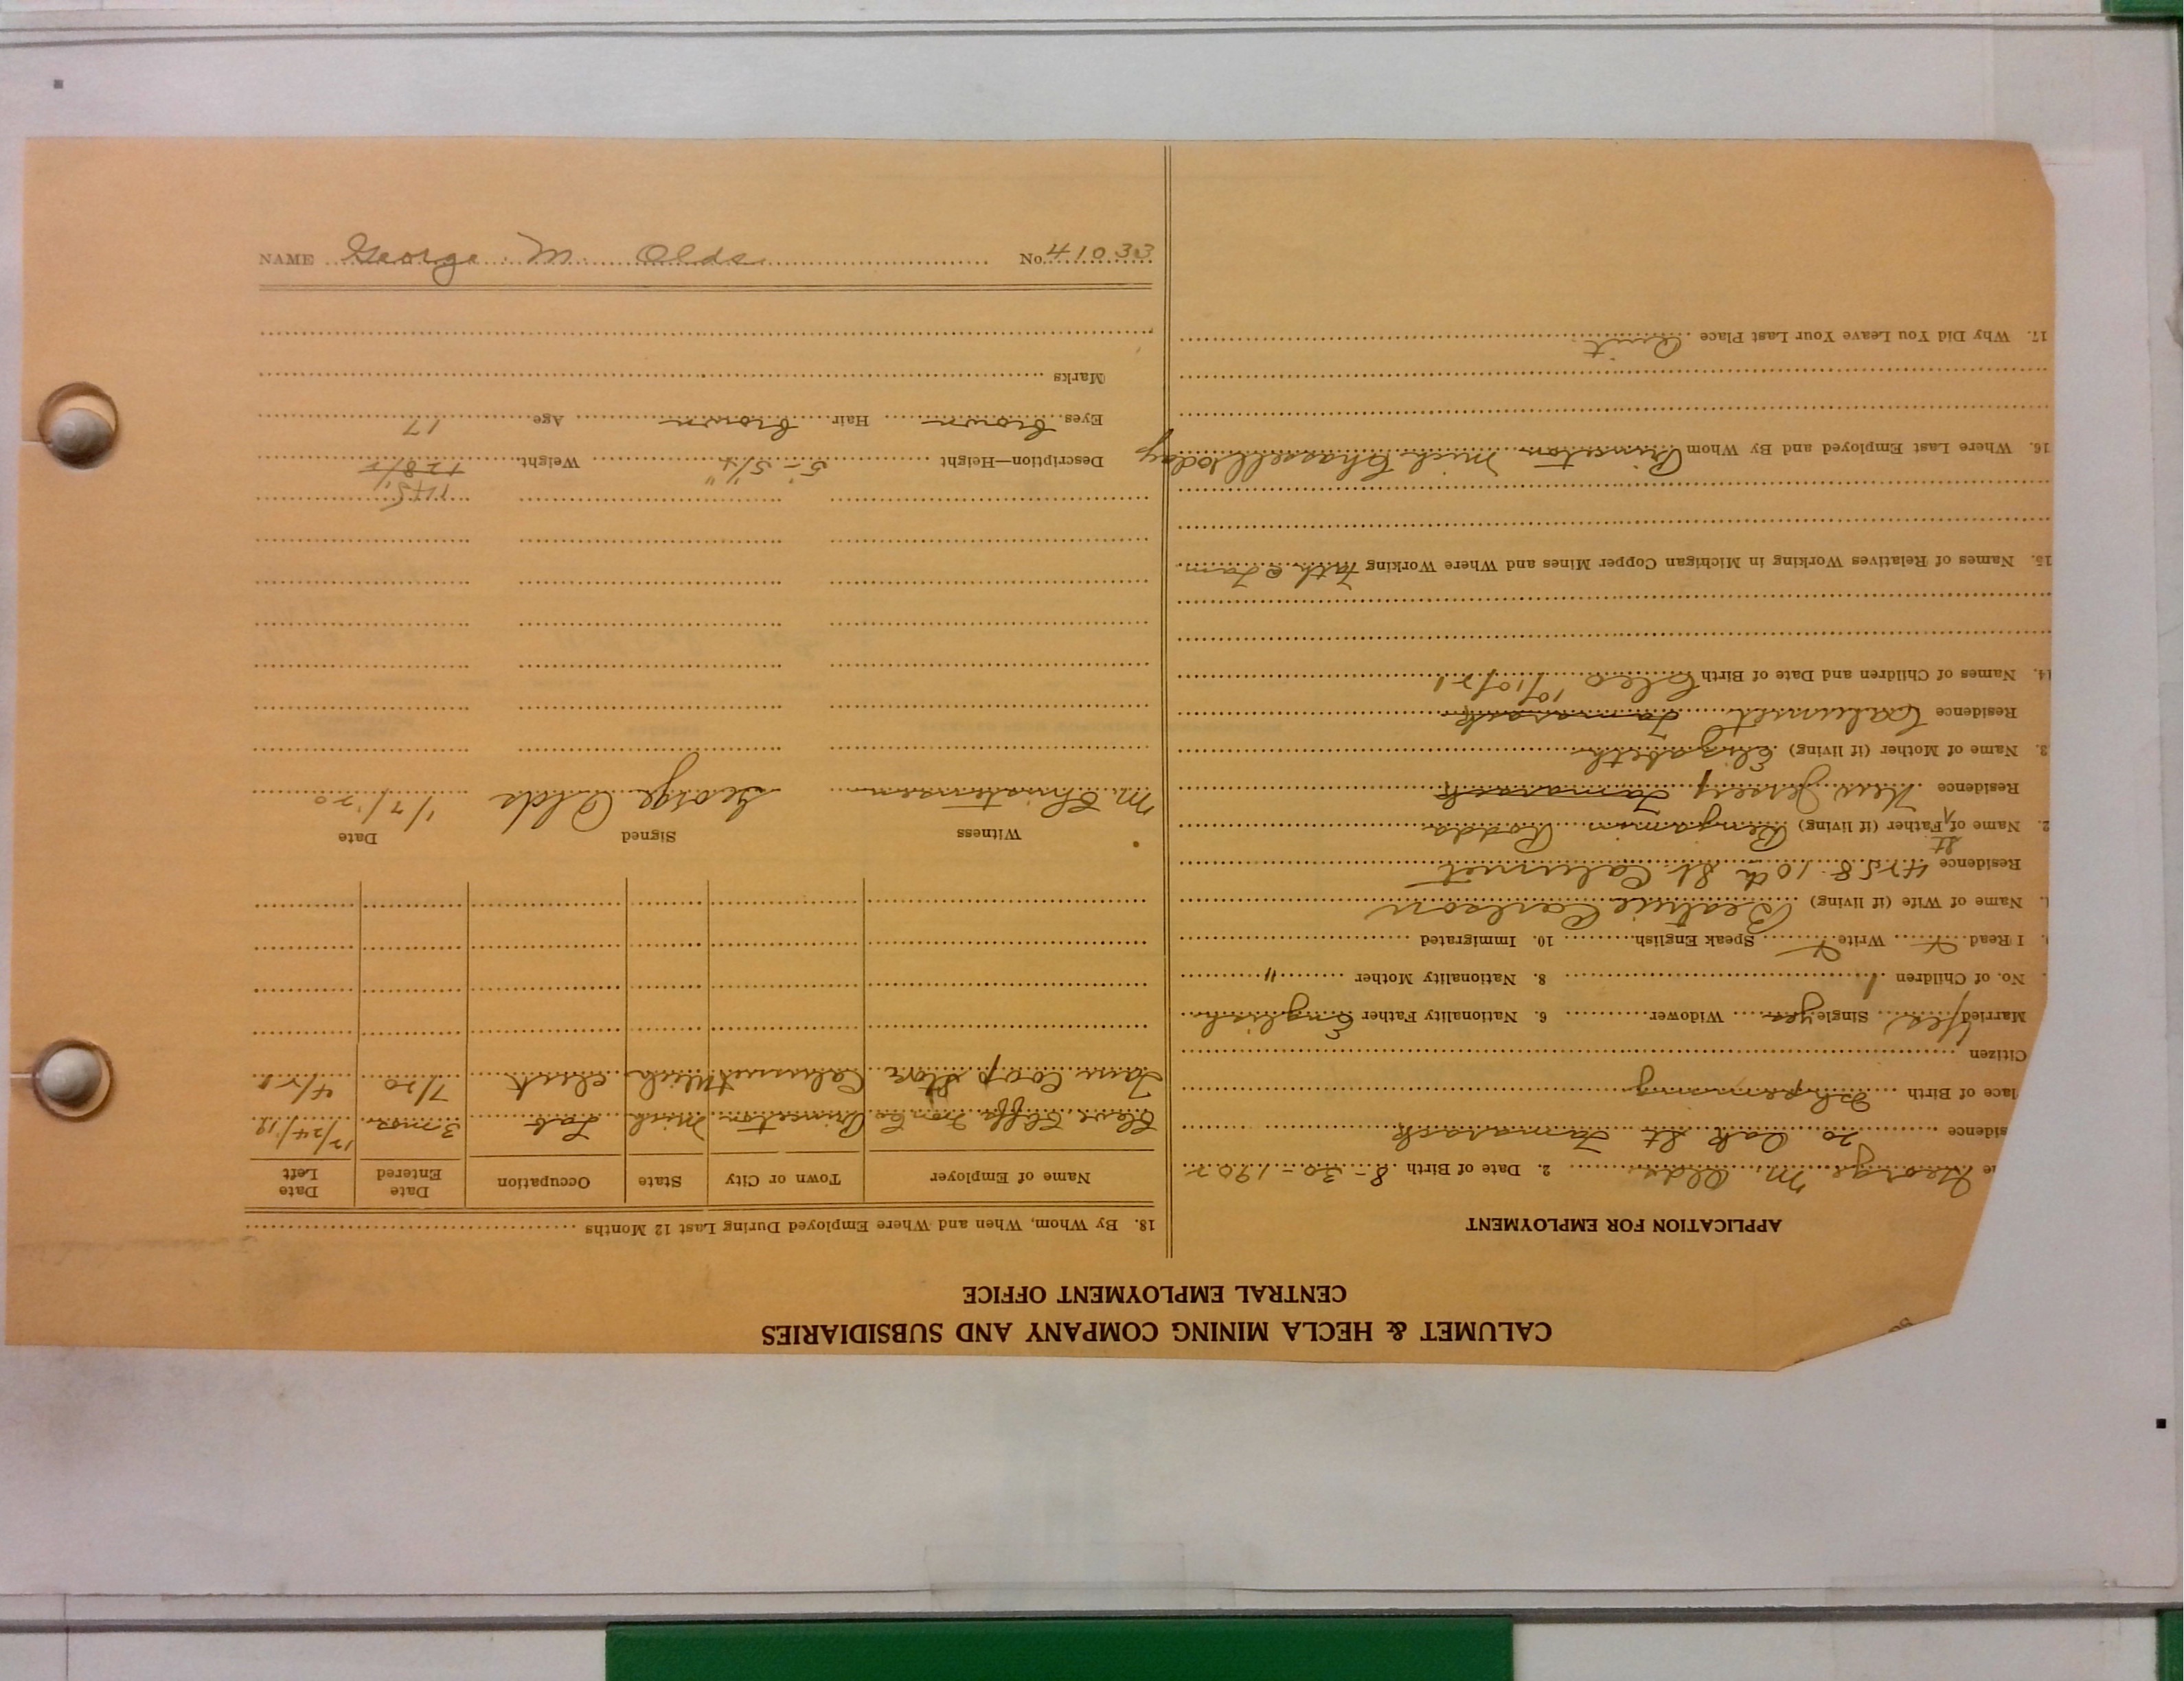 CALUMET & HECLA MINING COMPANY AND SUBSIDIARIES
CENTRAL EMPLOYMENT OFFICE
APPLICATION FOR EMPLOYMENT
George M. Olds 2. Date of Birth 8-30-1902
sidence 20 Oak St Tamarack
lace of Birth Ishpeming
Citizen
Married Yes Single yes Widower 6. Nationality Father English
No. of Children 1 8. Nationality Mother "
I Read x Write x Speak English 10. Immigrated
Name of Wife (if living) Beatrice Carlson
Residence 4258 10th St. Calumet
Name of St Father (if living) Benjamin Rodda
Residence New Jersey Tamarack
3. Name of Mother (if living) Elizabeth
Residence Calumet Tamarack
14. Names of Children and Date of Birth Cleo 10/10/21
15. Names of Relatives Working in Michigan Copper Mines and Where Working Fath @ Tam
16. Where Last Employed and By Whom Princeton Mich
17. Why Did You Leave Your Last Place Quit
18. By Whom, When and Where Employed During Last 12 Months
Name of Employer Town or City State Occupation Date Entered Date Left
Cleve Cliffs Iron Co Princeton Mich Lab 3 mos 12/24/19
Tam Coop Store Calumet Mich Clerk 7/20 4/21
Witness Signed Date
M. Christensen George Olds 1/7/20
Description—Height 5'-5 1/4" Weight 128 1/2
Eyes brown Hair brown Age 17
Marks
NAME George M. Olds No. 41033